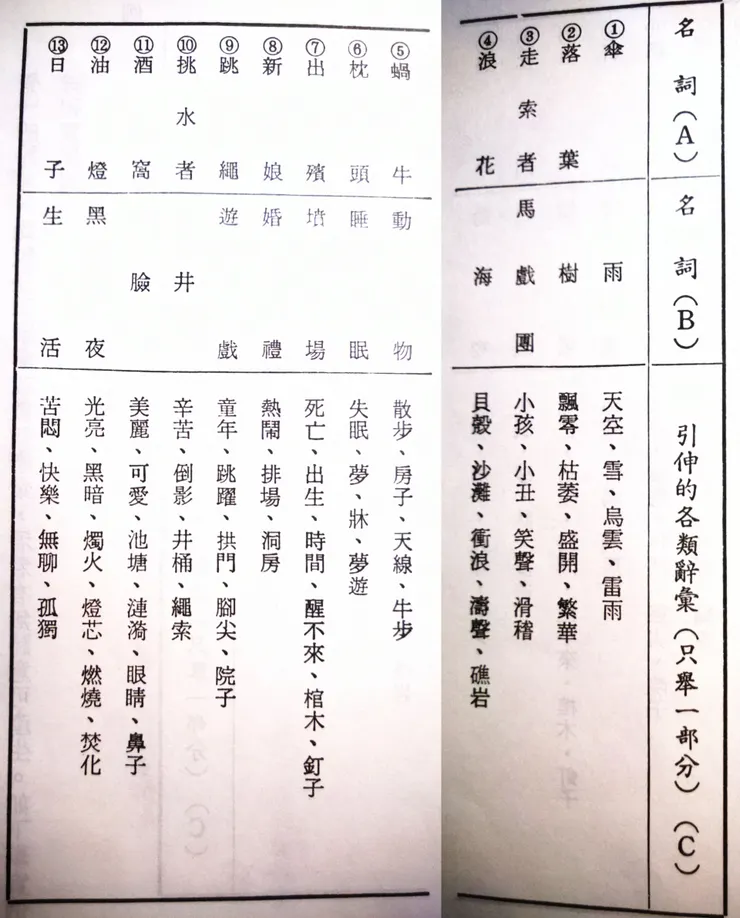 名詞(A)
名詞(B)
引伸的各類辭彙(只舉一部分)(C)
①傘
雨
天空、雪、烏雲、雷雨
②落葉
樹
飄零、枯萎、盛開、繁華
③走索者
馬戲團
小孩、小丑、笑聲、滑稽
④浪花
海
貝殼、沙灘、衝浪、濤聲、礁岩
⑤蝸牛
動物
散步、房子、天線、牛步
⑥枕頭
睡眠
失眠、夢、牀、夢遊
⑦出殯
墳場
死亡、出生、時間、醒不來、棺木、釘子
⑧新娘
婚禮
熱鬧、排場、洞房
⑨跳繩
遊戲
童年、跳躍、拱門、腳尖、院子
⑩挑水者
井
辛苦、倒影、井桶、繩索
⑪酒窩
臉
美麗、可愛、池塘、漣漪、眼睛、鼻子
⑫油燈
黑夜
光亮、黑暗、燭火、燈芯、燃燒、焚化
⑬日子
生活
苦悶、快樂、無聊、孤獨